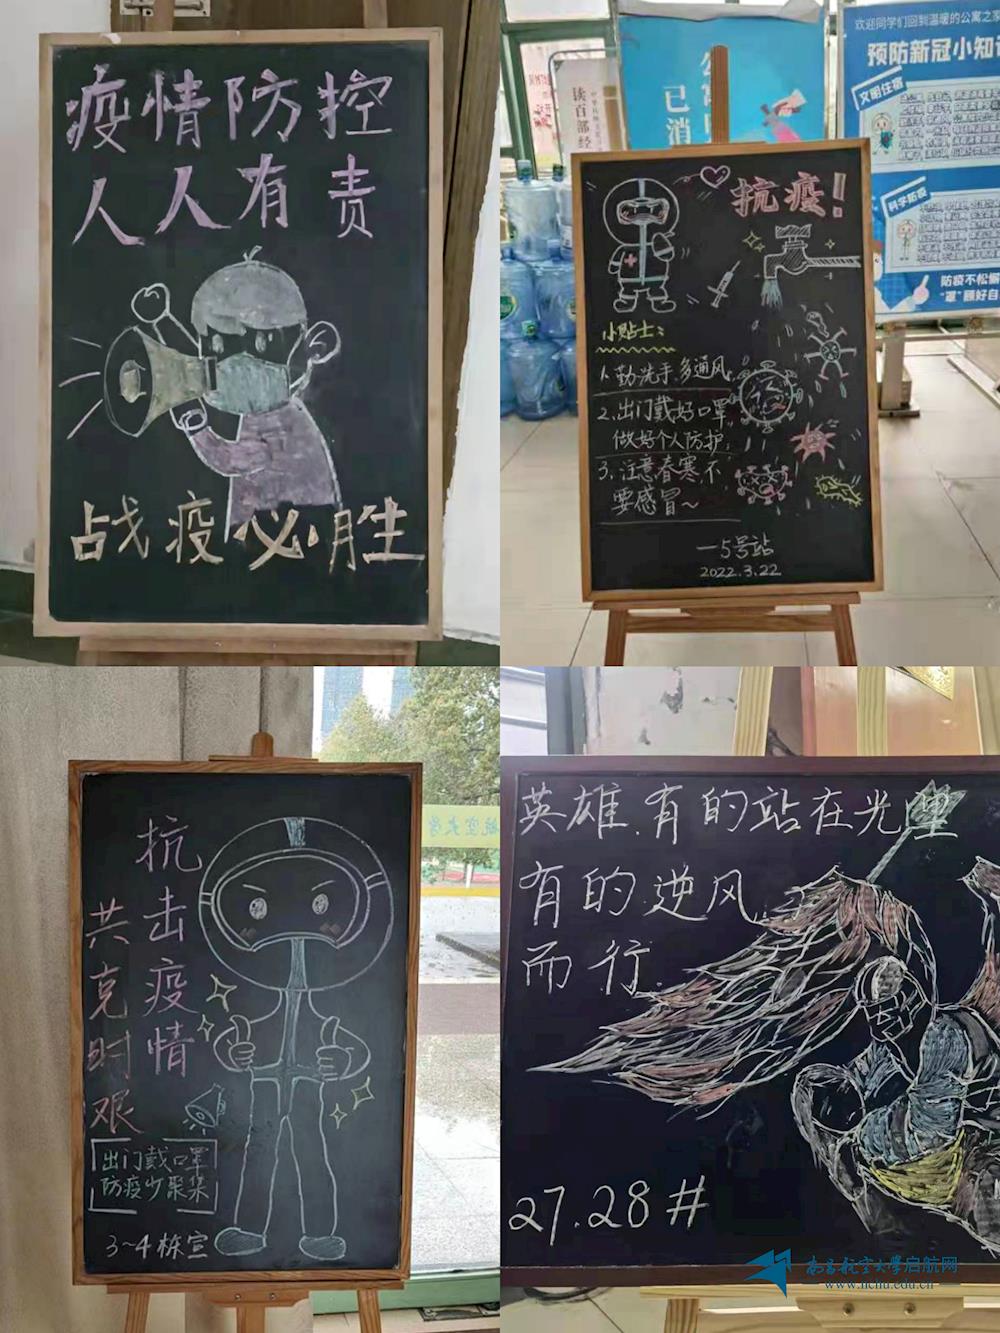 疫情防控
人人有责
战疫必胜
读百部经
已消
欢迎同学们回到温暖的公寓之家
预防新冠小知
文明住宿
科学防疫
防疫不松懈
"罩"顾好自
抗疫!
小贴士:
1.勤洗手,多通风
2.出门戴好口罩
做好个人防护,
3.注意春寒,不
要感冒~
一5号站
2022.3.22
抗击疫情
共克时艰
出门戴口罩
防疫少聚集
3~4栋宣
航空大学
英雄,有的站在光里
有的逆风
而行
27.28#
南昌航空大学启航网
www.nchu.edu.cn